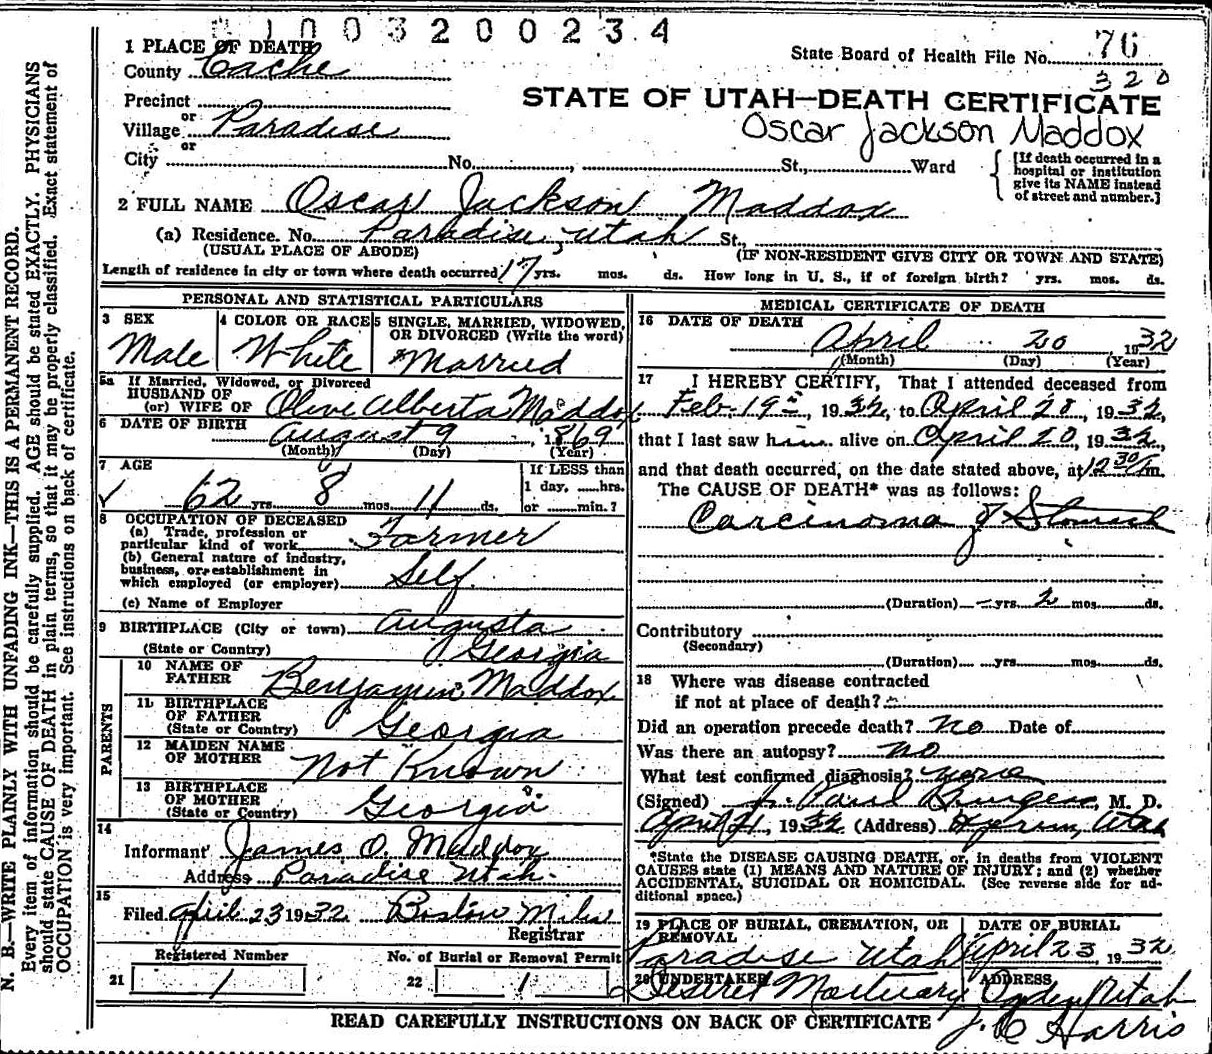 0 1 0 0 3 2 0 0 2 3 4
1 PLACE OF DEATH
County Cache
State Board of Health File No. 76
320
Precinct
or
Village Paradise
or
STATE OF UTAH—DEATH CERTIFICATE
Oscar Jackson Maddox
City No. , St., Ward
[If death occurred in a hospital or institution give its NAME instead of street and number.]
2 FULL NAME Oscar Jackson Maddox
(a) Residence. No. Paradise, Utah St.,
(USUAL PLACE OF ABODE) (IF NON-RESIDENT GIVE CITY OR TOWN AND STATE)
Length of residence in city or town where death occurred 17 yrs. mos. ds. How long in U. S., if of foreign birth? yrs. mos. ds.
PERSONAL AND STATISTICAL PARTICULARS
3 SEX
Male
4 COLOR OR RACE
White
5 SINGLE, MARRIED, WIDOWED,
OR DIVORCED (Write the word)
Married
5a If Married, Widowed, or Divorced
HUSBAND OF
(or) WIFE OF Olive Alberta Maddox
6 DATE OF BIRTH August 9, 1869
(Month) (Day) (Year)
7 AGE
62 yrs. 8 mos. 11 ds.
If LESS than
1 day, hrs.
or min.?
8 OCCUPATION OF DECEASED
(a) Trade, profession or
particular kind of work Farmer
(b) General nature of industry,
business, or establishment in
which employed (or employer) Self
(c) Name of Employer
9 BIRTHPLACE (City or town) Augusta
(State or Country) Georgia
PARENTS
10 NAME OF
FATHER Benjamin Maddox
11 BIRTHPLACE
OF FATHER
(State or Country) Georgia
12 MAIDEN NAME
OF MOTHER Not Known
13 BIRTHPLACE
OF MOTHER
(State or Country) Georgia
14
Informant James O. Maddox
Address Paradise Utah.
15
Filed April 23 1932 Boston Miles
Registrar
Registered Number
21 1
No. of Burial or Removal Permit
22 1
MEDICAL CERTIFICATE OF DEATH
16 DATE OF DEATH
April 20 1932
(Month) (Day) (Year)
17 I HEREBY CERTIFY, That I attended deceased from
Feb. 19, 1932, to April 20, 1932,
that I last saw him alive on April 20, 1932,
and that death occurred, on the date stated above, at 12 30 m.
The CAUSE OF DEATH* was as follows:
Carcinoma of Stomach
(Duration) — yrs. 2 mos. ds.
Contributory
(Secondary)
(Duration) yrs. mos. ds.
18 Where was disease contracted
if not at place of death?
Did an operation precede death? no Date of
Was there an autopsy? no
What test confirmed diagnosis? none
(Signed) Paul Burgess, M. D.
April 21, 1932 (Address) Hyrum, Utah
*State the DISEASE CAUSING DEATH, or, in deaths from VIOLENT
CAUSES state (1) MEANS AND NATURE OF INJURY; and (2) whether
ACCIDENTAL, SUICIDAL OR HOMICIDAL. (See reverse side for additional space.)
19 PLACE OF BURIAL, CREMATION, OR
REMOVAL
Paradise Utah
DATE OF BURIAL
April 23, 1932
20 UNDERTAKER
Deseret Mortuary
ADDRESS
Ogden, Utah
J. C Harris
READ CAREFULLY INSTRUCTIONS ON BACK OF CERTIFICATE
N. B.—WRITE PLAINLY WITH UNFADING INK—THIS IS A PERMANENT RECORD.
Every item of information should be carefully supplied. AGE should be stated EXACTLY. PHYSICIANS
should state CAUSE OF DEATH in plain terms, so that it may be properly classified. Exact statement of
OCCUPATION is very important. See instructions on back of certificate.